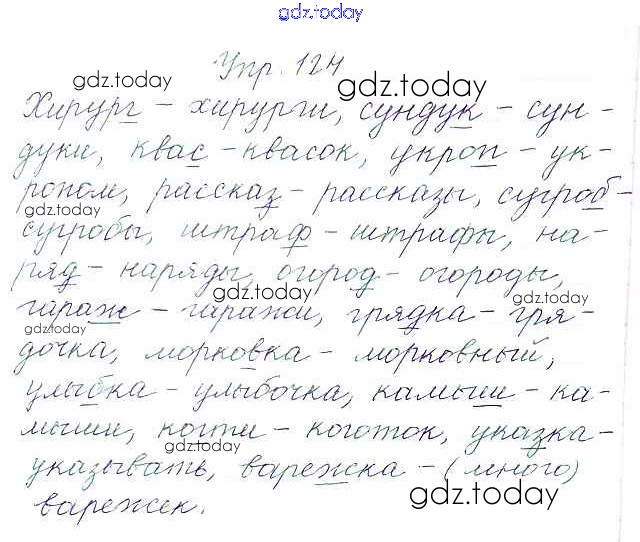 gdz.today
Упр. 124
gdz.today
gdz.today
Хирург - хирурги, сундук - сун-
дуки, квас - квасок, укроп - ук-
ропом, рассказ - рассказы, сугроб -
gdz.today
сугробы, штраф - штрафы, на-
ряд - наряды, огород - огороды,
gdz.today
gdz.today
гараж - гаражи, грядка - гря-
gdz.today
дочка, морковка - морковный,
улыбка - улыбочка, камыш - ка-
мыши, когти - коготок, указка -
gdz.today
указывать, варежка - (много)
gdz.today
варежек.